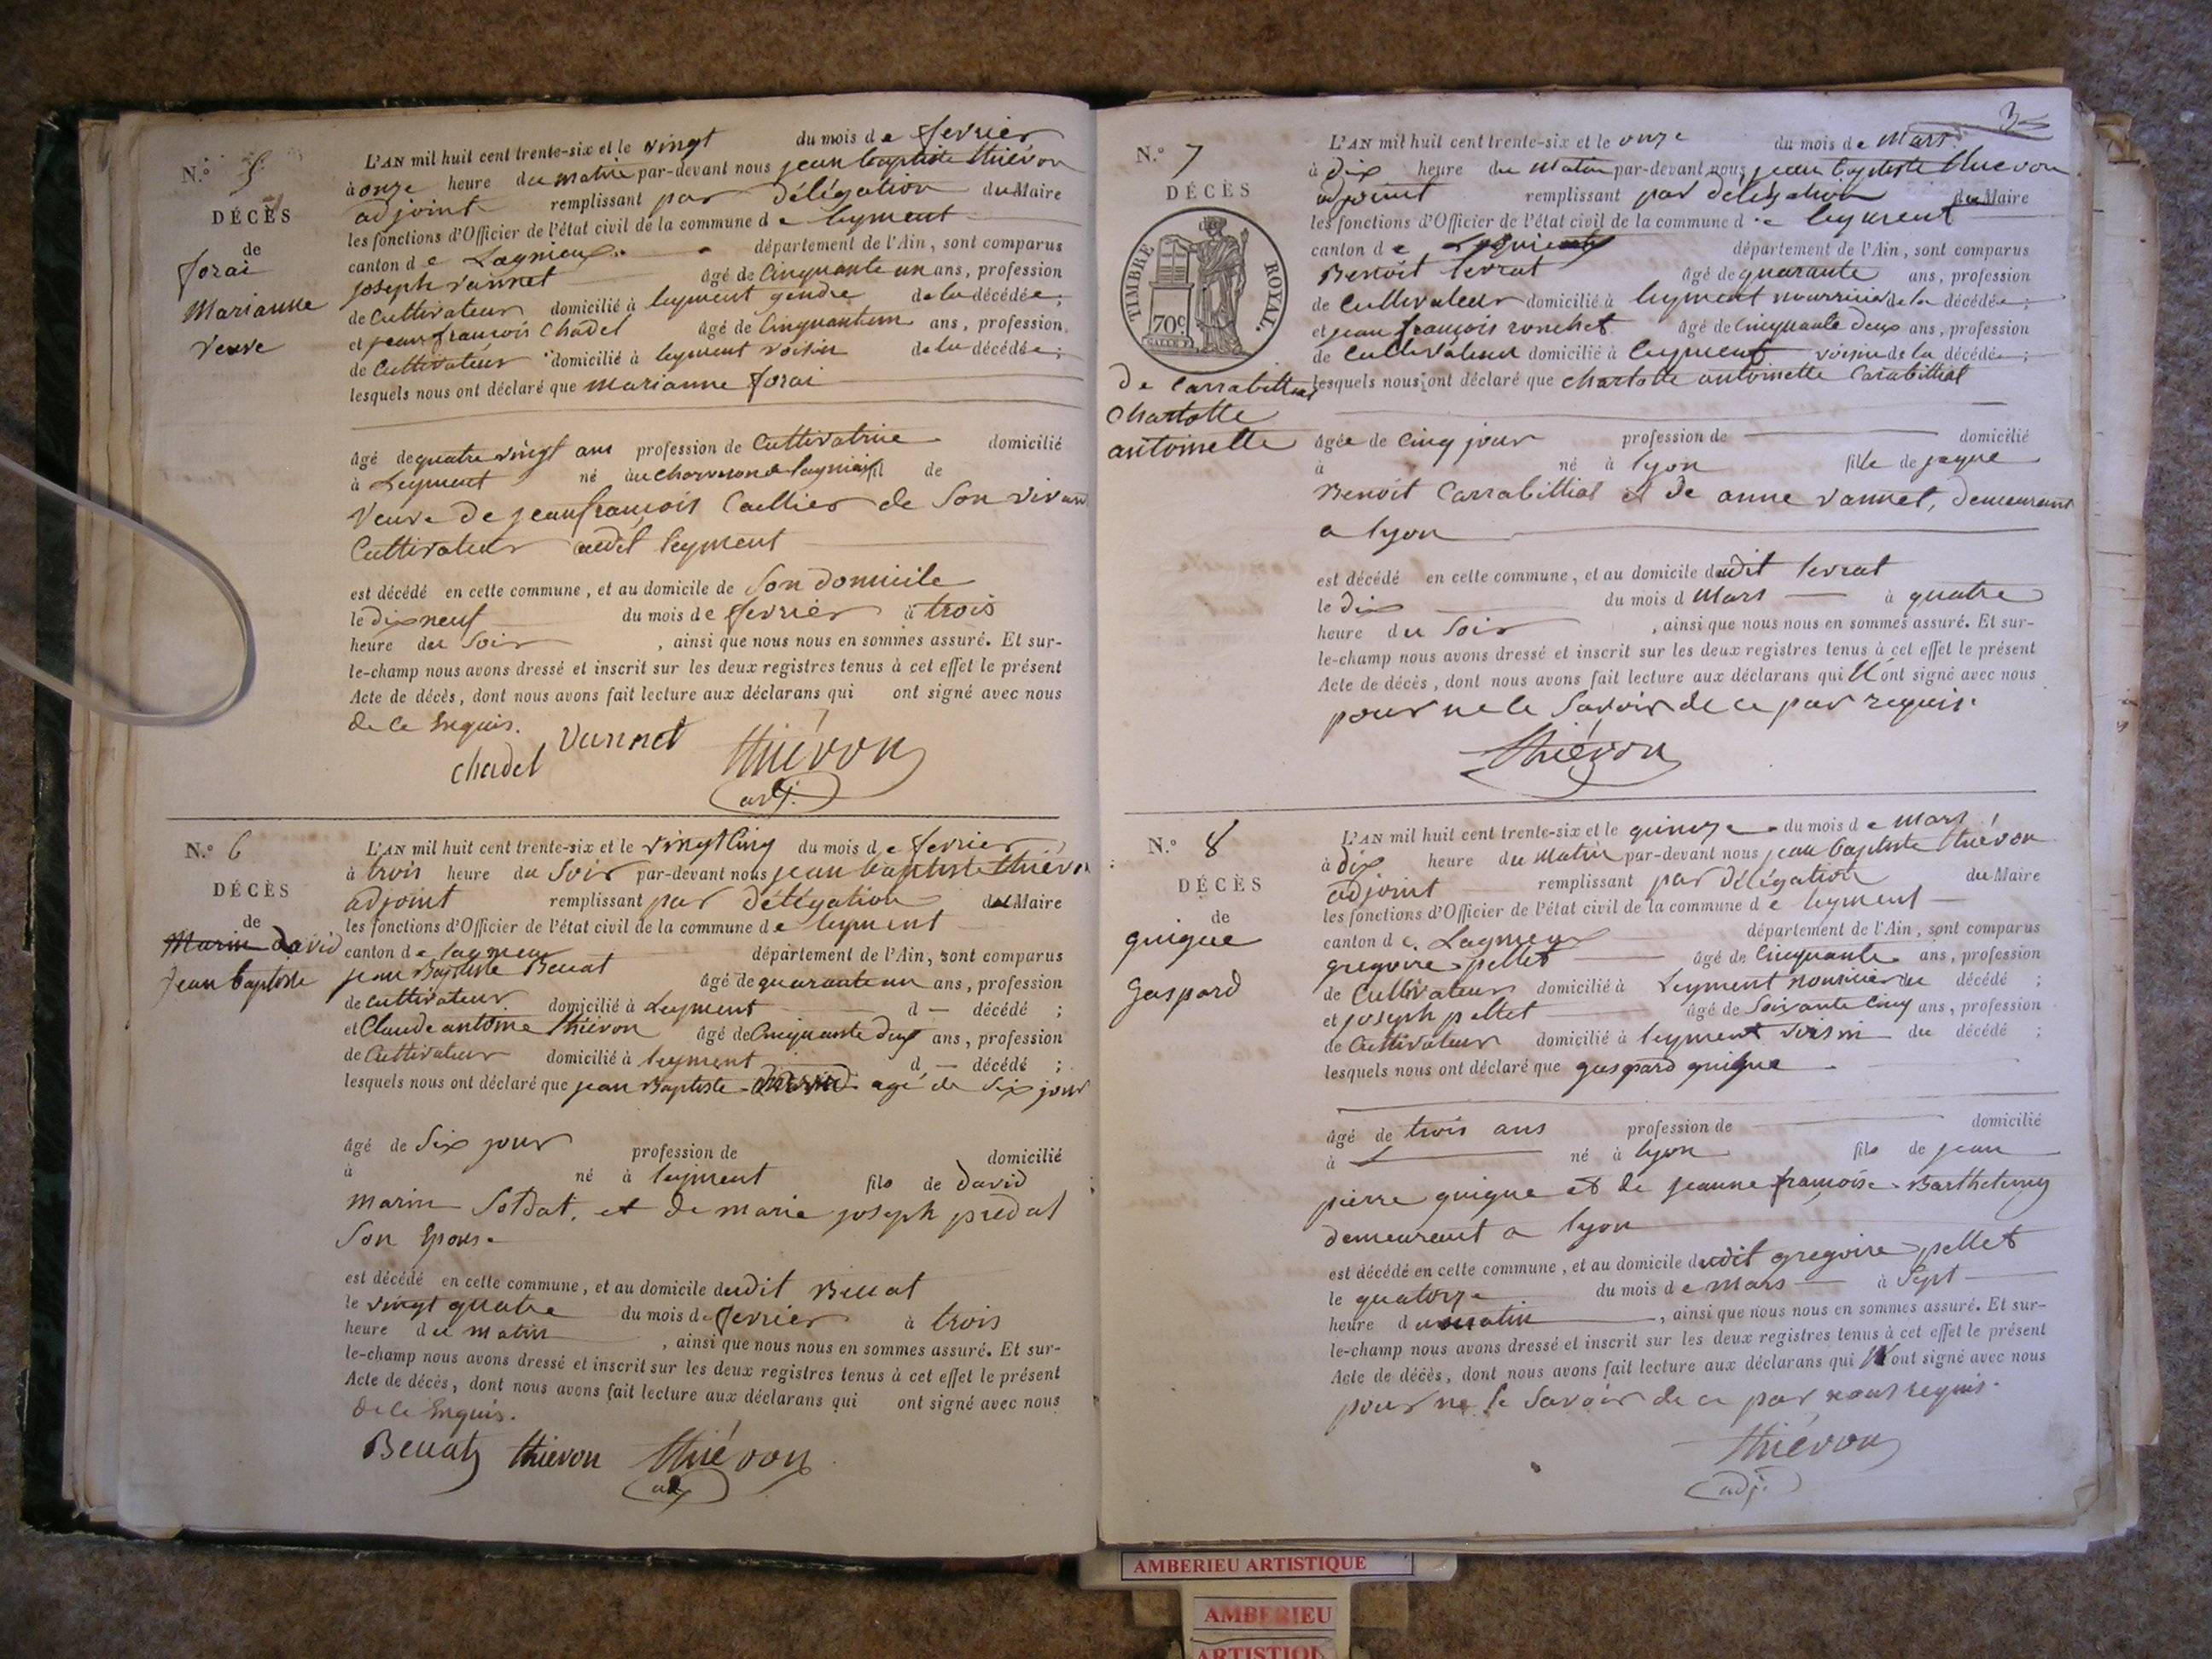 N.° 5
DÉCÈS
de
forai
Marianne
veuve
L'AN mil huit cent trente-six et le vingt du mois de fevrier
à onze heure du matin par-devant nous jean baptiste thiévon
adjoint remplissant par délégation du Maire
les fonctions d'Officier de l'état civil de la commune de leyment
canton de Lagnieux département de l'Ain, sont comparus
joseph vannet âgé de Cinquante un ans, profession
de Cultivateur domicilié à leyment gendre de la décédée;
et jean françois Chadel âgé de Cinquante un ans, profession
de Cultivateur domicilié à leyment voisin de la décédée;
lesquels nous ont déclaré que marianne forai
âgé de quatre vingt ans profession de Cultivatrice domicilié
à Leyment né au de
veuve de jean françois Caellier de Son vivan
Cultivateur audit leyment
est décédé en cette commune, et au domicile de Son domicile
le dix neuf du mois de fevrier à trois
heure du Soir, ainsi que nous nous en sommes assuré. Et sur-
le-champ nous avons dressé et inscrit sur les deux registres tenus à cet effet le présent
Acte de décès, dont nous avons fait lecture aux déclarans qui ont signé avec nous
de ce Enquis.
chadel Vannet thiévon
adj.
N.° 6
DÉCÈS
de
Marin david
Jean baptiste
L'AN mil huit cent trente-six et le vingt Cinq du mois de fevrier
à trois heure du Soir par-devant nous jean baptiste thiévon
adjoint remplissant par délégation du Maire
les fonctions d'Officier de l'état civil de la commune de leyment
canton de lagnieu département de l'Ain, sont comparus
jean Baptiste Beuat âgé de quarante un ans, profession
de Cultivateur domicilié à Leyment d — décédé;
et Claude antoine thiévon âgé de Cinquante deux ans, profession
de Cultivateur domicilié à leyment d — décédé;
lesquels nous ont déclaré que jean Baptiste agé de six jour
âgé de Six jour profession de domicilié
à né à leyment fils de david
marin Soldat, et de marie joseph predal
Son Epouse
est décédé en cette commune, et au domicile dudit Beuat
le vingt quatre du mois de fevrier à trois
heure du matin, ainsi que nous nous en sommes assuré. Et sur-
le-champ nous avons dressé et inscrit sur les deux registres tenus à cet effet le présent
Acte de décès, dont nous avons fait lecture aux déclarans qui ont signé avec nous
de ce Enquis.
Beuat thievon thiévon
3
N.° 7
DÉCÈS
TIMBRE ROYAL.
70c
de Carrabillial
Charlotte
antoinette
L'AN mil huit cent trente-six et le onze du mois de Mars
à dix heure du Matin par-devant nous jean baptiste thievon
adjoint remplissant par delégation du Maire
les fonctions d'Officier de l'état civil de la commune de leyment
canton de département de l'Ain, sont comparus
Benoit levrat âgé de quarante ans, profession
de Cultivateur domicilié à leyment nourricier de la décédée;
et jean françois ronchet âgé de Cinquante deux ans, profession
de Cultivateur domicilié à leyment voisin de la décédée;
lesquels nous ont déclaré que charlotte antoinette Carabillial
âgée de Cinq jour profession de domicilié
à né à lyon fille de jaque
Benoit Carrabillial et de anne vannet, demeurant
a lyon
est décédé en cette commune, et au domicile dudit levrat
le dix du mois d Mars à quatre
heure du Soir, ainsi que nous nous en sommes assuré. Et sur-
le-champ nous avons dressé et inscrit sur les deux registres tenus à cet effet le présent
Acte de décès, dont nous avons fait lecture aux déclarans qui N'ont signé avec nous
pour ne le Savoir de ce par requis.
thiévon
N.° 8
DÉCÈS
de
guigue
Gaspard
L'AN mil huit cent trente-six et le quinze du mois de mars
à dix heure du Matin par-devant nous jean baptiste thiévon
adjoint remplissant par délégation du Maire
les fonctions d'Officier de l'état civil de la commune de leyment
canton de Lagnieux département de l'Ain, sont comparus
gregoire pellet âgé de Cinquante ans, profession
de Cultivateur domicilié à Leyment nouricier du décédé;
et joseph pellet âgé de Soixante Cinq ans, profession
de Cultivateur domicilié à leyment voisin du décédé;
lesquels nous ont déclaré que gaspard guigue
âgé de trois ans profession de domicilié
à né à lyon fils de jean
pierre guigue et de jeanne françoise Barthelemy
demeurant a lyon
est décédé en cette commune, et au domicile dudit gregoire pellet
le quatorze du mois de mars à Sept
heure du matin, ainsi que nous nous en sommes assuré. Et sur-
le-champ nous avons dressé et inscrit sur les deux registres tenus à cet effet le présent
Acte de décès, dont nous avons fait lecture aux déclarans qui N'ont signé avec nous
pour ne le Savoir de ce par nous requis.
thiévon
adj.
AMBERIEU ARTISTIQUE
AMBERIEU
ARTISTIQU